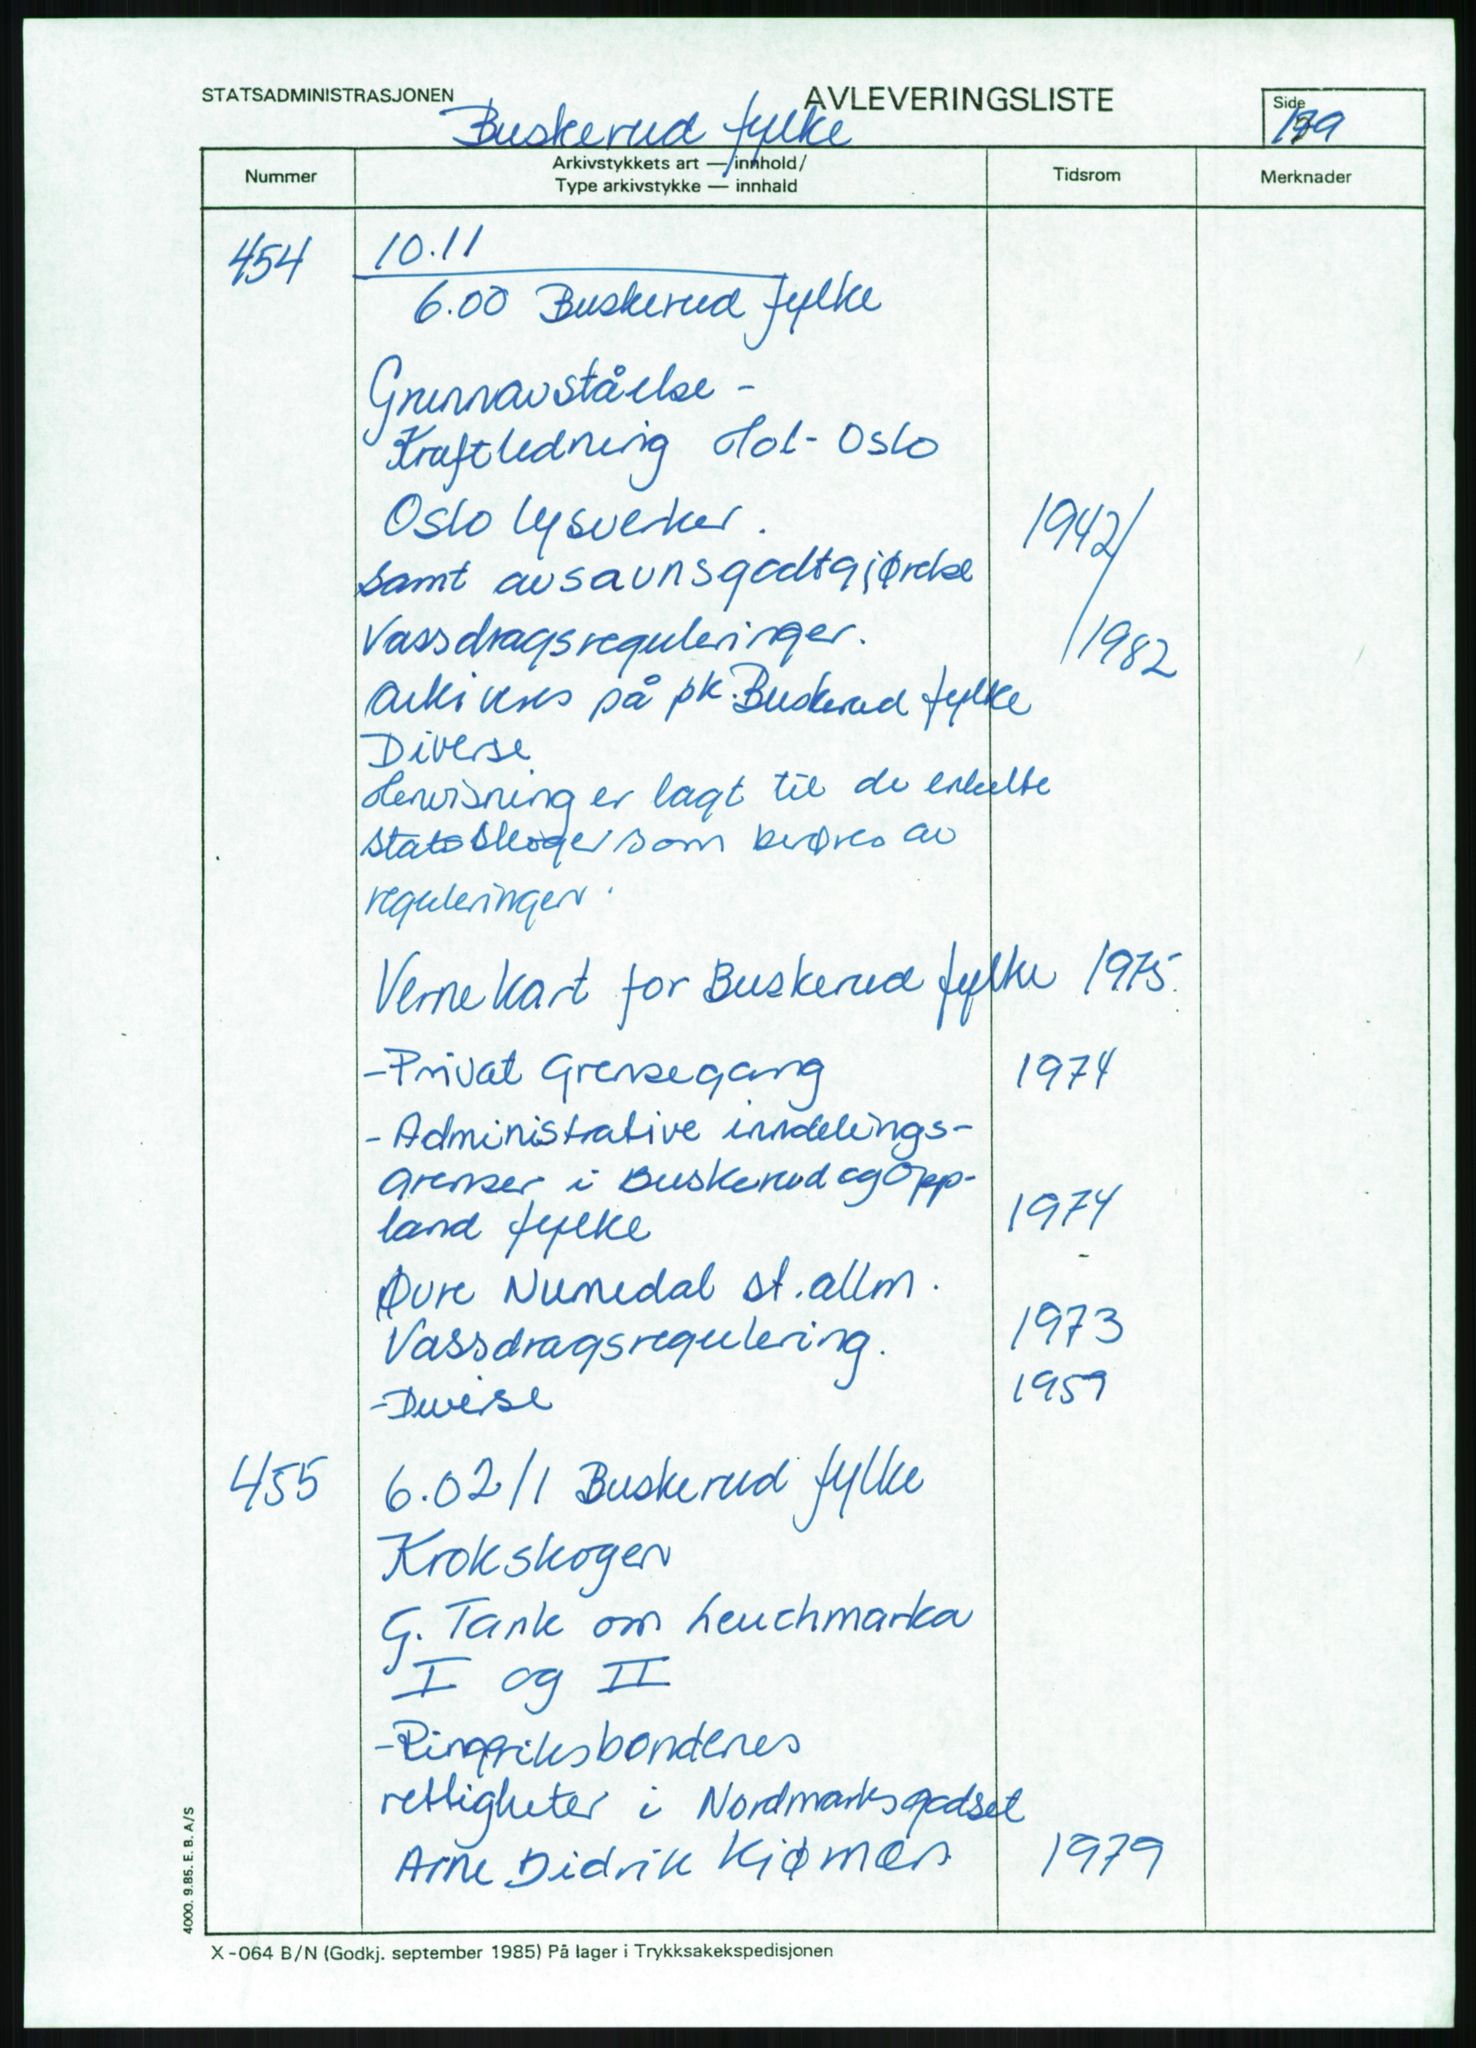 STATSADMINISTRASJONEN
AVLEVERINGSLISTE
Side
Buskerud fylke
Nummer
Arkivstykkets art — innhold/
Type arkivstykke — innhald
Tidsrom
Merknader
454
10.11
6.00 Buskerud fylke
Grunnavståelse -
Kraftledning Hol - Oslo
Oslo lysverker.
1942/
samt avsavnsgodtgjørelse
Vassdragsreguleringer.
/1982
arkiveres på pk. Buskerud fylke
Diverse
Henvisning er lagt til de enkelte
statsskoger som berøres av
reguleringen.
Vernekart for Buskerud fylke 1975.
- Privat Grensegang 1974
- Administrative inndelings-
grenser i Buskerud og Opp-
land fylke 1974
Øvre Numedal st. allm.
Vassdragsregulering. 1973
- Diverse 1959
455
6.02/1 Buskerud fylke
Krokskogen
G. Tank om heuchmarka
I og II
- Ringriksbondenes
rettigheter i Nordmarksgodset
Arne Didrik Kjørnæs 1979
4000. 9.85. E. B. A/S
X-064 B/N (Godkj. september 1985) På lager i Trykksakekspedisjonen